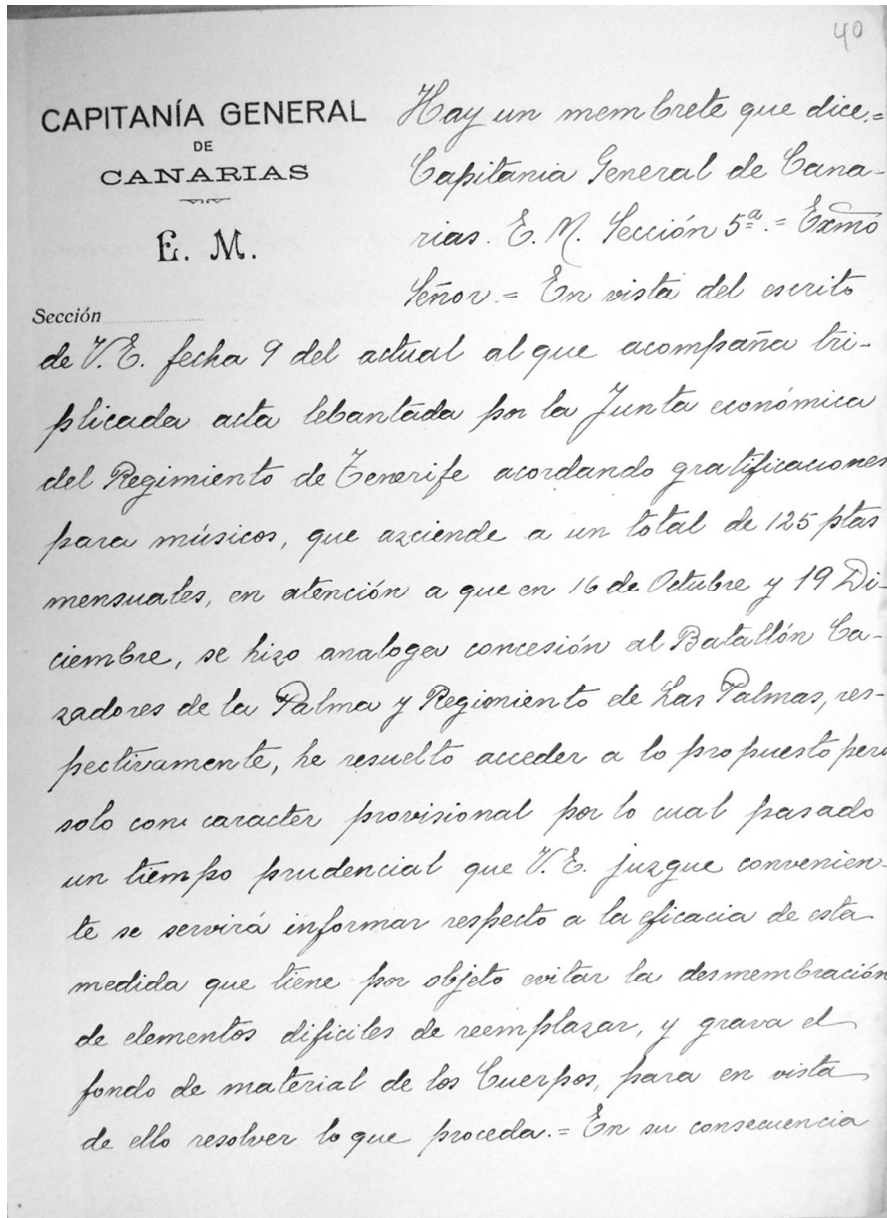 40
CAPITANÍA GENERAL
DE
CANARIAS
E. M.
Sección
Hay un membrete que dice.=
Capitania General de Cana-
rias. E. M. Sección 5ª.= Exmo
Señor.= En vista del escrito
de V.E. fecha 9 del actual al que acompaña tri-
plicada acta lebantada por la Junta económica
del Regimiento de Tenerife acordando gratificaciones
para músicos, que azciende a un total de 125 ptas
mensuales, en atención a que en 16 de Octubre y 19 Di-
ciembre, se hizo analoga concesión al Batallón Ca-
zadores de la Palma y Regimiento de Las Palmas, res-
pectivamente, he resuelto acceder a lo propuesto pero
solo con caracter provisional por lo cual pasado
un tiempo prudencial que V.E. juzgue convenien-
te se servirá informar respecto a la eficacia de esta
medida que tiene por objeto evitar la desmembración
de elementos dificiles de reemplazar, y grava el
fondo de material de los Cuerpos, para en vista
de ello resolver lo que proceda.= En su consecuencia